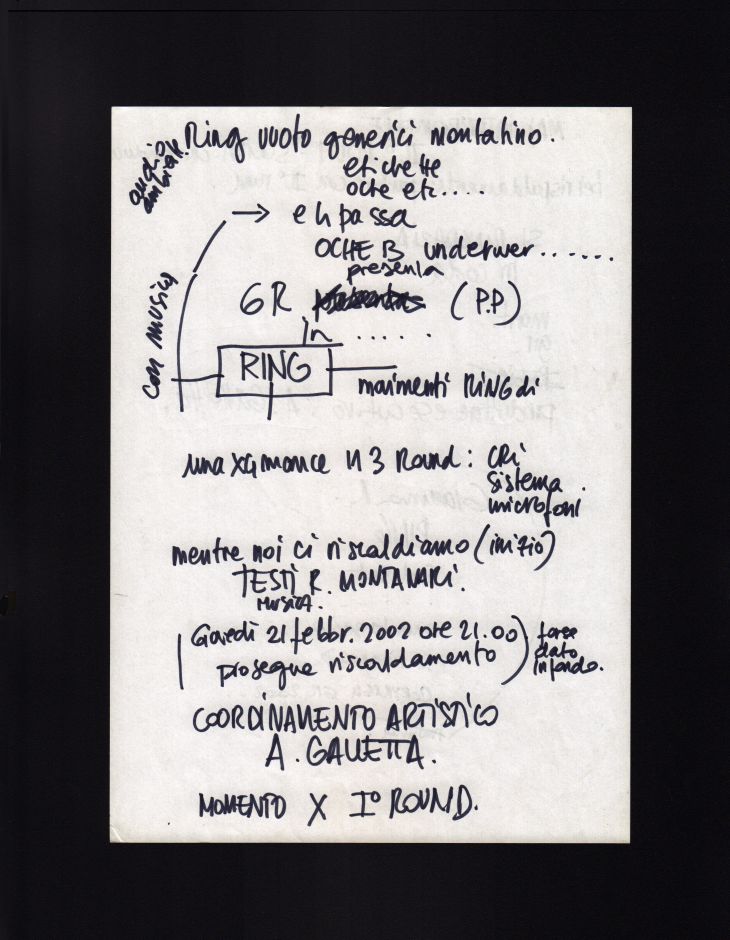 audio
Ring vuoto generici montatino.
etichette
oche etc.....
e li passa
OCHE B underwer......
presenta
GR (P.P)
In .....
con musica
RING
movimenti RING di
una performance in 3 Round: CRI
sistema
microfoni
mentre noi ci riscaldiamo (inizio)
TESTI R. MONTANARI.
MUSICA.
(Giovedì 21 febbr. 2002 ore 21.00
prosegue riscaldamento)
forse
dato
in fondo.
COORDINAMENTO ARTISTICO
A. GALLETTA.
MOMENTO X I° ROUND.